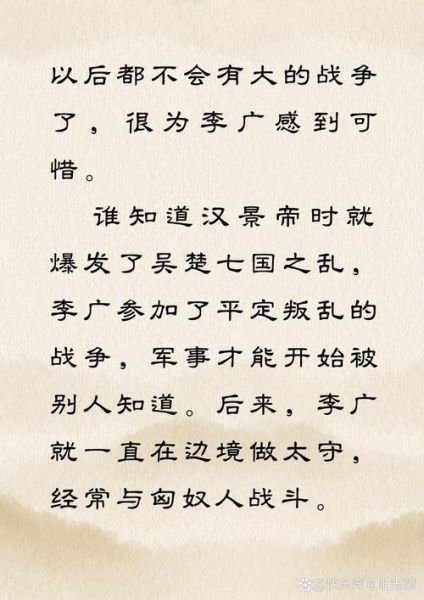 以后都不会有大的战争
了，很为李广感到可
惜。
谁知道汉景帝时就
爆发了吴楚七国之乱，
李广参加了平定叛乱的
战争，军事才能开始被
别人知道。后来，李广
就一直在边境做太守，
经常与匈奴人战斗。